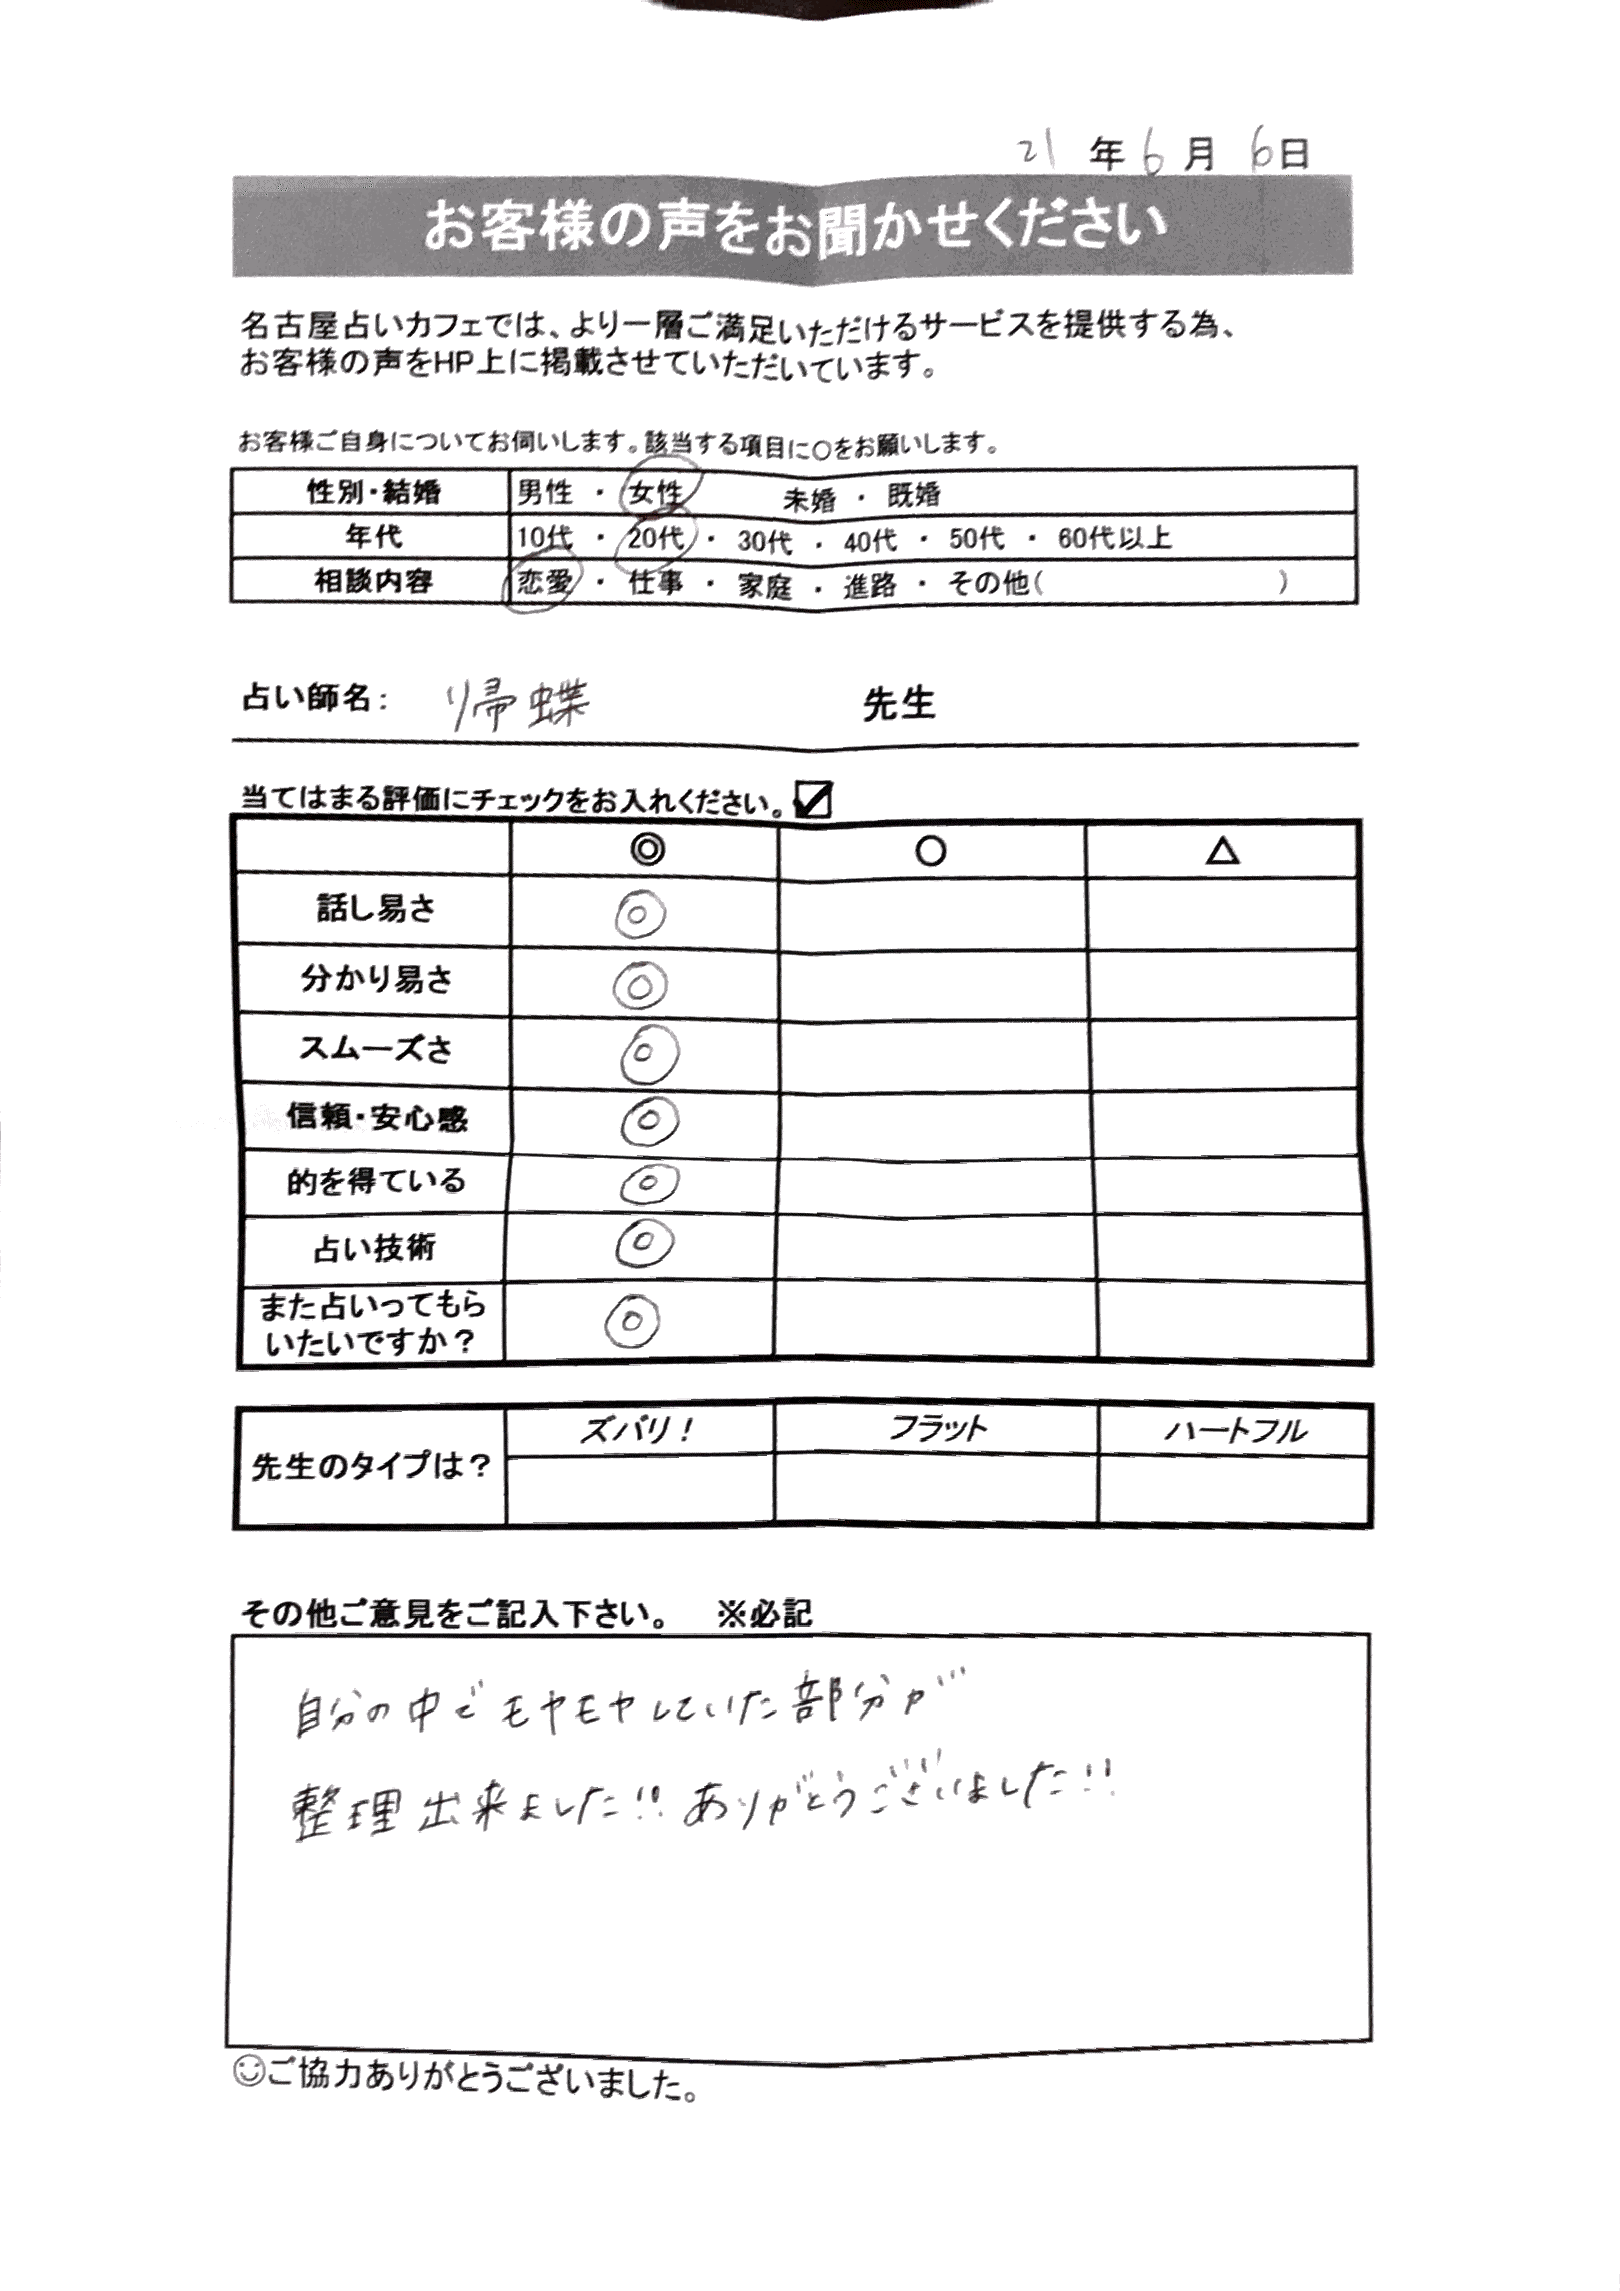 21 年 6 月 6 日
お客様の声をお聞かせください
名古屋占いカフェでは、より一層ご満足いただけるサービスを提供する為、
お客様の声をHP上に掲載させていただいています。
お客様ご自身についてお伺いします。該当する項目に○をお願いします。
性別・結婚 男性 ・ 女性 未婚 ・ 既婚
年代 10代 ・ 20代 ・ 30代 ・ 40代 ・ 50代 ・ 60代以上
相談内容 恋愛 ・ 仕事 ・ 家庭 ・ 進路 ・ その他( )
占い師名: 帰蝶 先生
当てはまる評価にチェックをお入れください。☑
◎ ○ △
話し易さ ◎
分かり易さ ◎
スムーズさ ◎
信頼・安心感 ◎
的を得ている ◎
占い技術 ◎
また占いってもら
いたいですか？ ◎
ズバリ！ フラット ハートフル
先生のタイプは？
その他ご意見をご記入下さい。 ※必記
自分の中でモヤモヤしていた部分が
整理出来ました!! ありがとうございました!!
☺ご協力ありがとうございました。